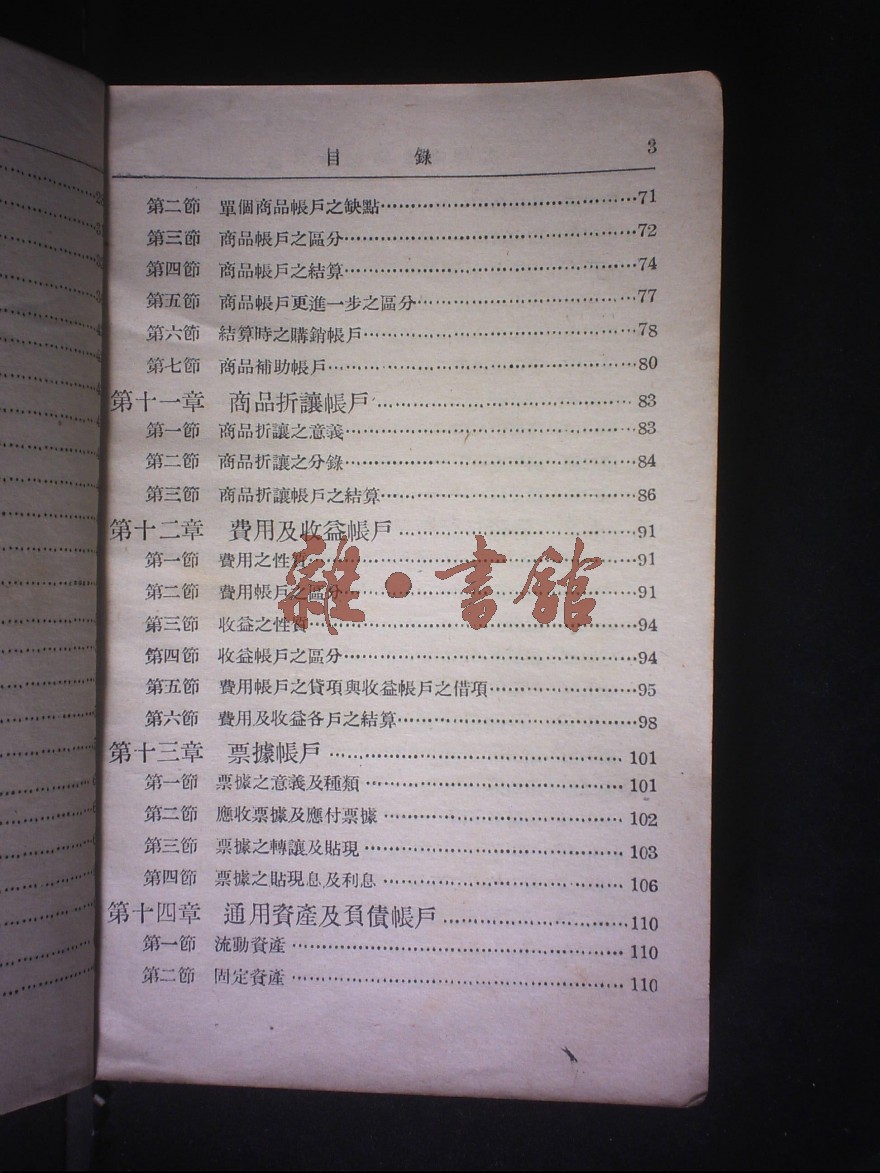 目 錄 3
第二節 單個商品帳戶之缺點 71
第三節 商品帳戶之區分 72
第四節 商品帳戶之結算 74
第五節 商品帳戶更進一步之區分 77
第六節 結算時之購銷帳戶 78
第七節 商品補助帳戶 80
第十一章 商品折讓帳戶 83
第一節 商品折讓之意義 83
第二節 商品折讓之分錄 84
第三節 商品折讓帳戶之結算 86
第十二章 費用及收益帳戶 91
第一節 費用之性質 91
第二節 費用帳戶之區分 91
第三節 收益之性質 94
第四節 收益帳戶之區分 94
第五節 費用帳戶之貸項與收益帳戶之借項 95
第六節 費用及收益各戶之結算 98
第十三章 票據帳戶 101
第一節 票據之意義及種類 101
第二節 應收票據及應付票據 102
第三節 票據之轉讓及貼現 103
第四節 票據之貼現息及利息 106
第十四章 通用資產及負債帳戶 110
第一節 流動資產 110
第二節 固定資產 110
雜•書館